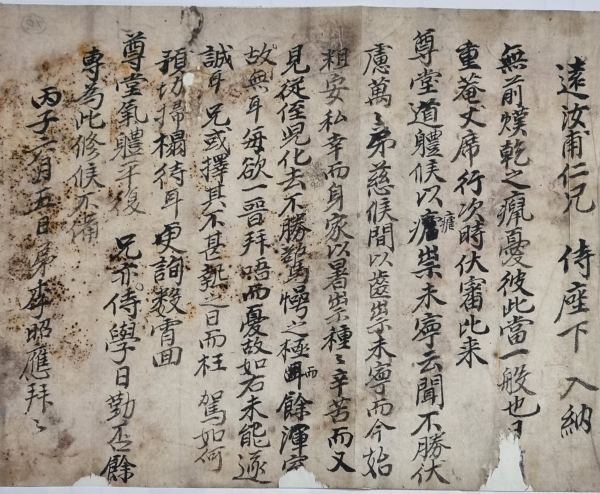 遠汝甫仁兄 侍座下 入納
無前熯乾之痛憂彼此當一般也日
重菴丈席行次時伏審比来
尊堂道體候以瘧祟未寧云聞不勝伏
慮萬〻弟慈候間以齒祟未寧而今始
粗安私幸而身家以暑祟種〻辛苦而又
見從侄児化去不勝驚愕之極而餘渾家
故無耳每欲一晉拜唔而憂故如右未能遂
誠耳兄或擇其不甚熱之日而枉 駕如何
預切掃榻待耳更詢数宵回
尊堂氣體平復 兄亦侍學日勤否餘
專為此修候不備
丙子六月五日弟李昭應拜〻